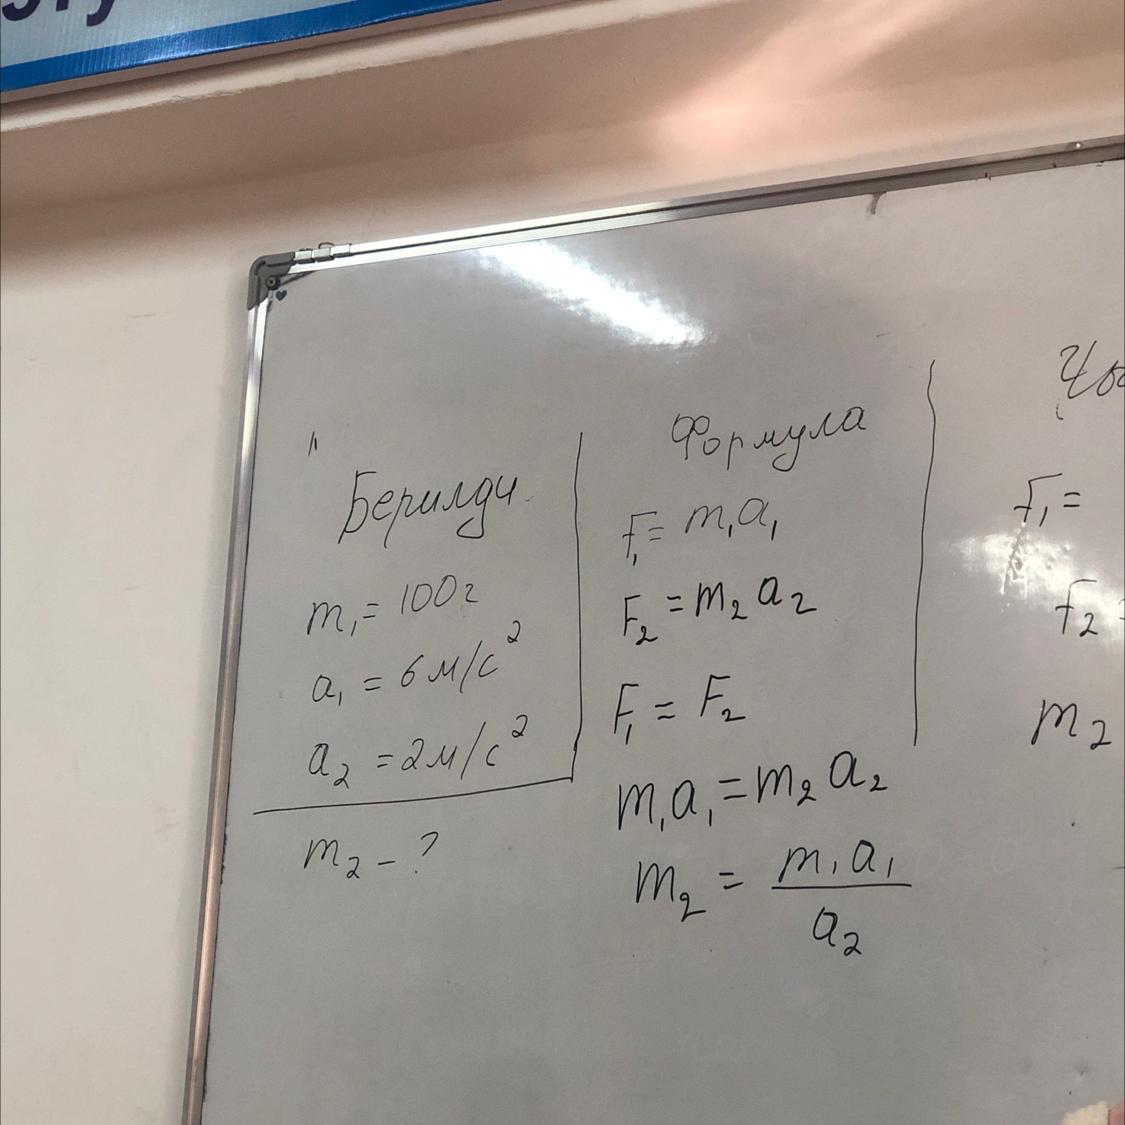 Берилди
m₁ = 100г
a₁ = 6м/с²
a₂ = 2м/с²
m₂ - ?
Формула
F₁ = m₁a₁
F₂ = m₂a₂
F₁ = F₂
m₁a₁ = m₂a₂
m₂ = m₁a₁ / a₂
F₁ =
F₂
m₂